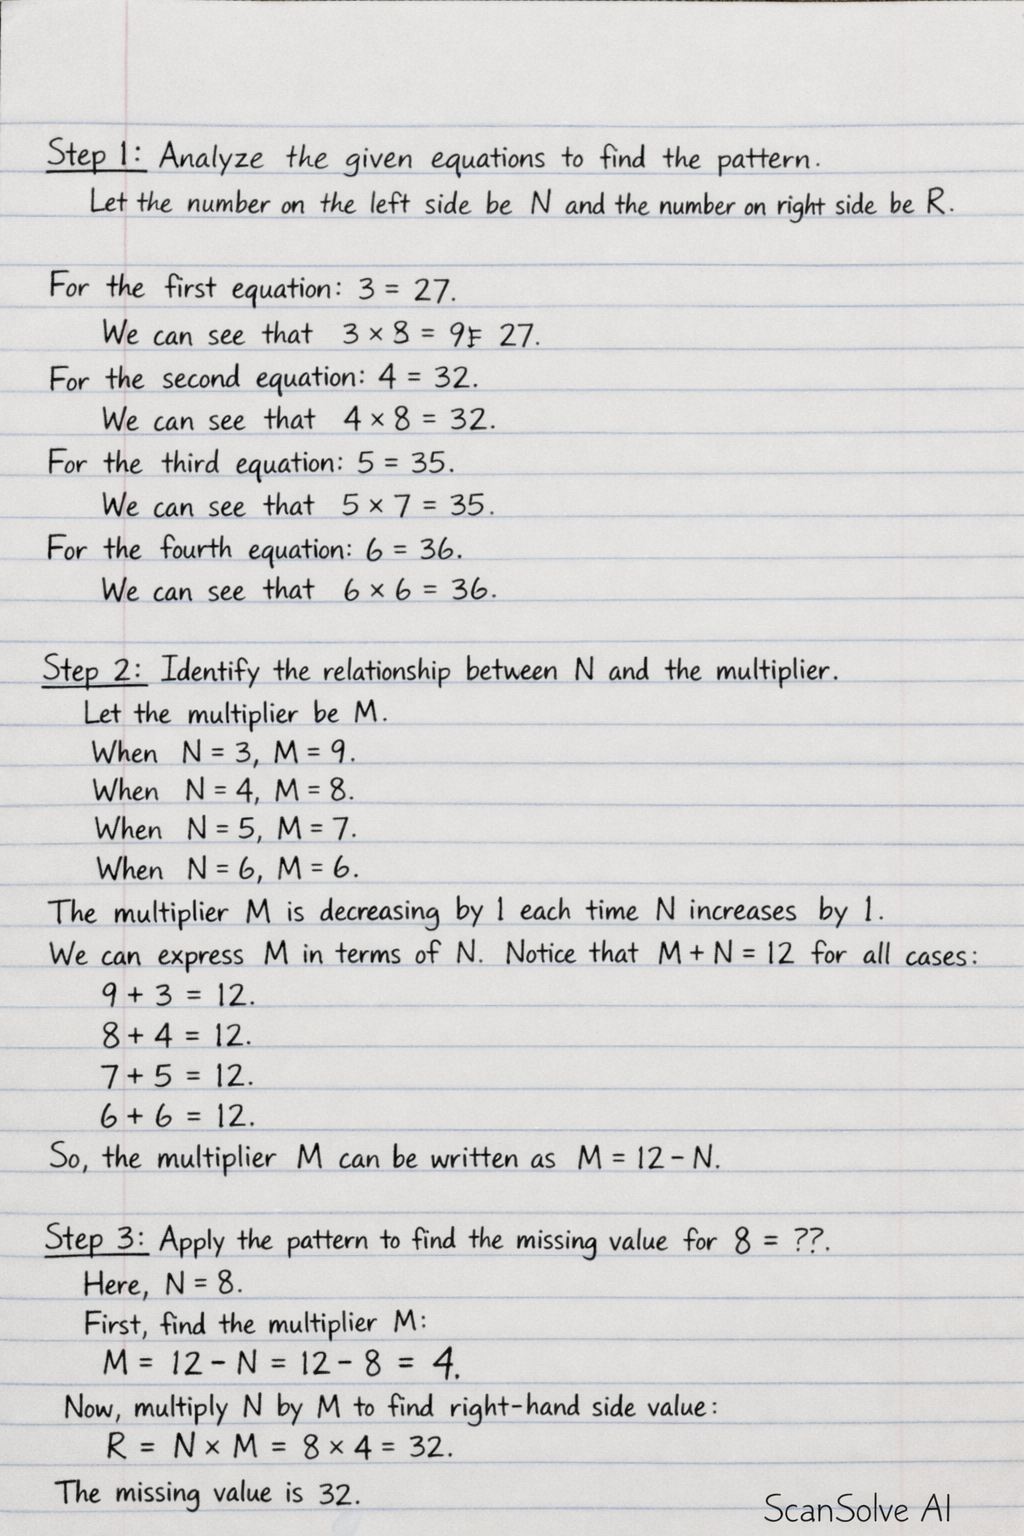 Step 1: Analyze the given equations to find the pattern.
Let the number on the left side be N and the number on right side be R.
For the first equation: 3 = 27.
We can see that 3 × 8 = 9 27.
For the second equation: 4 = 32.
We can see that 4 × 8 = 32.
For the third equation: 5 = 35.
We can see that 5 × 7 = 35.
For the fourth equation: 6 = 36.
We can see that 6 × 6 = 36.
Step 2: Identify the relationship between N and the multiplier.
Let the multiplier be M.
When N = 3, M = 9.
When N = 4, M = 8.
When N = 5, M = 7.
When N = 6, M = 6.
The multiplier M is decreasing by 1 each time N increases by 1.
We can express M in terms of N. Notice that M + N = 12 for all cases:
9 + 3 = 12.
8 + 4 = 12.
7 + 5 = 12.
6 + 6 = 12.
So, the multiplier M can be written as M = 12 - N.
Step 3: Apply the pattern to find the missing value for 8 = ??.
Here, N = 8.
First, find the multiplier M:
M = 12 - N = 12 - 8 = 4.
Now, multiply N by M to find right-hand side value:
R = N × M = 8 × 4 = 32.
The missing value is 32.
ScanSolve AI